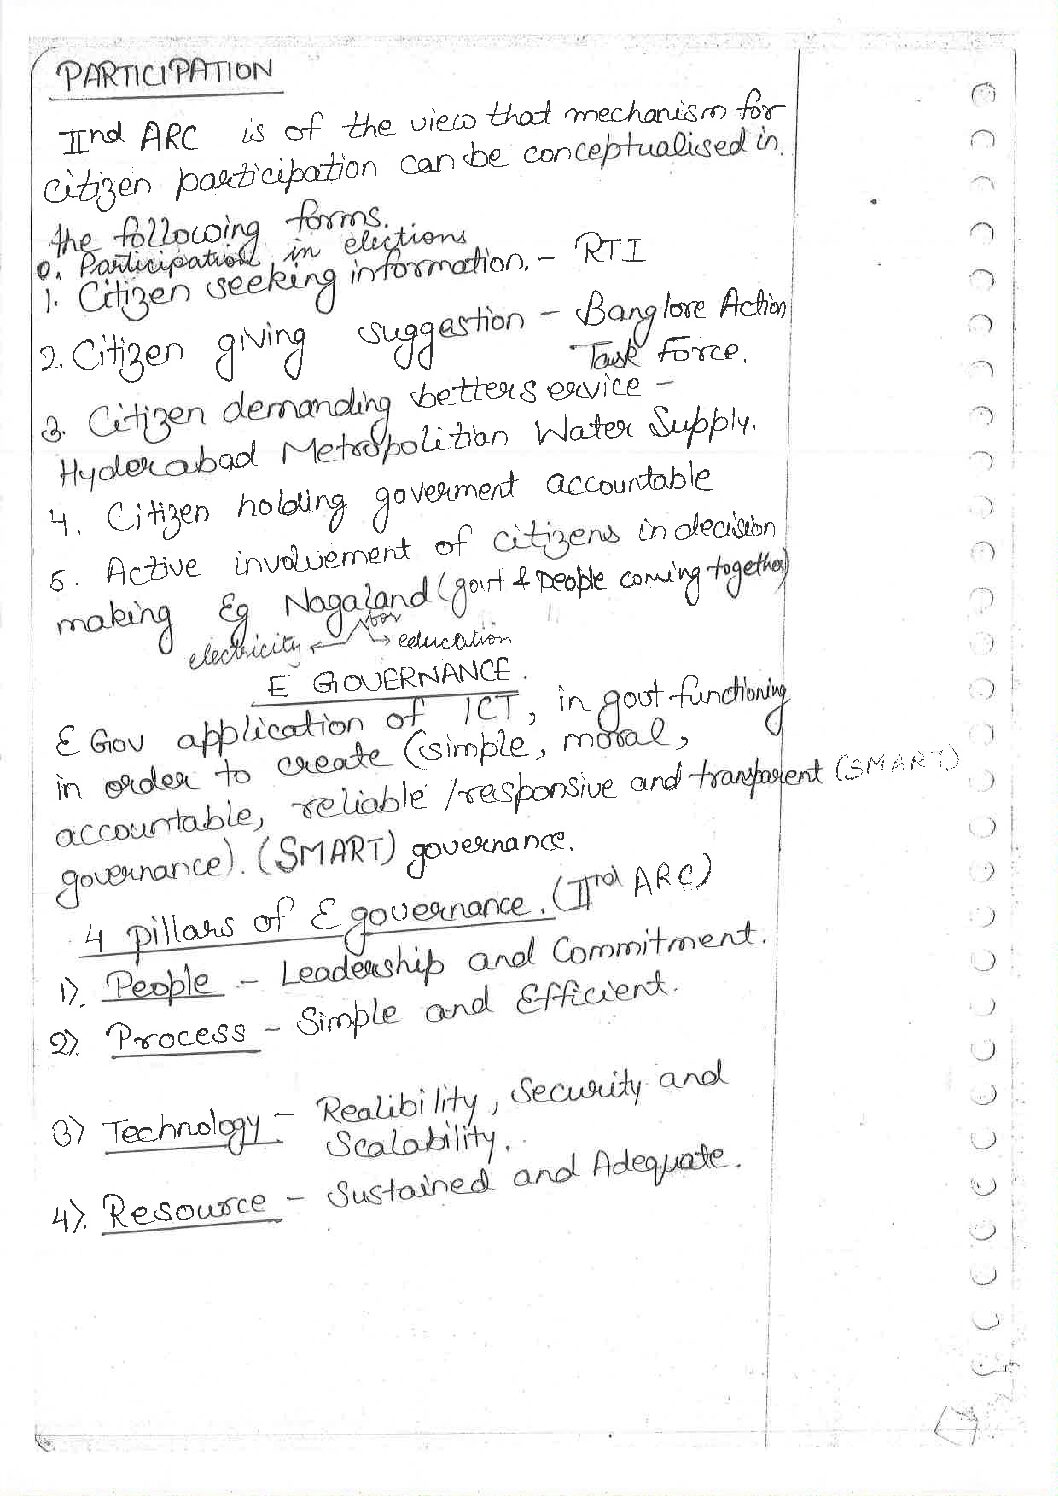 PARTICIPATION
IInd ARC is of the view that mechanism for
citizen participation can be conceptualised in
the following forms.
0. Participation in elections
1. Citizen seeking information. - RTI
2. Citizen giving suggestion - Banglore Action
Task Force.
3. Citizen demanding better service -
Hyderabad Metropolitian Water Supply.
4. Citizen holding goverment accountable
5. Active involvement of citizens in decision
making Eg Nagaland (govt & people coming together)
for
electricity education
E GOVERNANCE.
E Gov application of ICT, in govt functioning
in order to create (simple, moral,
accountable, reliable/responsive and transparent (SMART)
governance). (SMART) governance.
4 pillars of E governance. (IInd ARC)
1). People - Leadership and Commitment.
2). Process - Simple and Efficient.
3) Technology - Realibility, Security and
Scalability.
4). Resource - Sustained and Adequate.